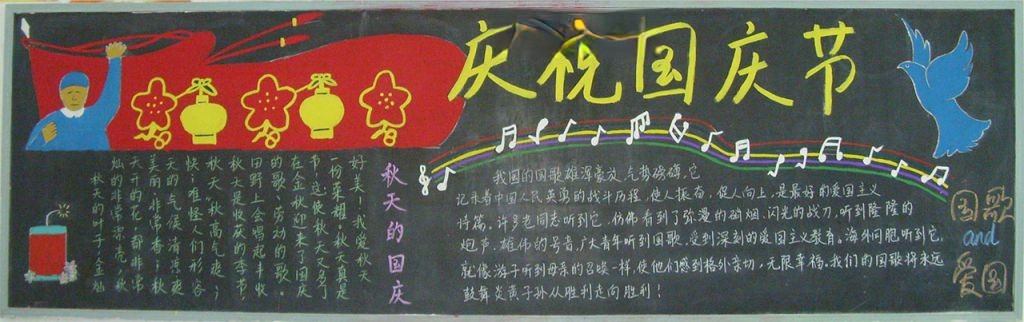 庆祝国庆节
秋天的国庆
秋天的叶子金灿
灿的非常漂亮,秋
天开的花,都非常
美丽,非常香;秋
天的气候清凉爽
快,难怪人们形容
秋天“秋高气爽”。
秋天是收获的季节,
田野上会唱起丰收
的歌、劳动的歌。
在金秋迎来了国庆
节,这使秋天又多了
一份荣耀。秋天真是
好美!我爱秋天
我国的国歌雄浑豪放,气势磅礴,它
记录着中国人民英勇的战斗历程,使人振奋,促人向上,是最好的爱国主义
诗篇。许多老同志听到它,仿佛看到了弥漫的硝烟、闪光的战刀,听到隆隆的
炮声、雄伟的号音,广大青年听到国歌,受到深刻的爱国主义教育。海外同胞听到它,
就像游子听到母亲的召唤一样,使他们感到格外亲切,无限幸福。我们的国歌将永远
鼓舞炎黄子孙从胜利走向胜利!
国歌
and
爱国